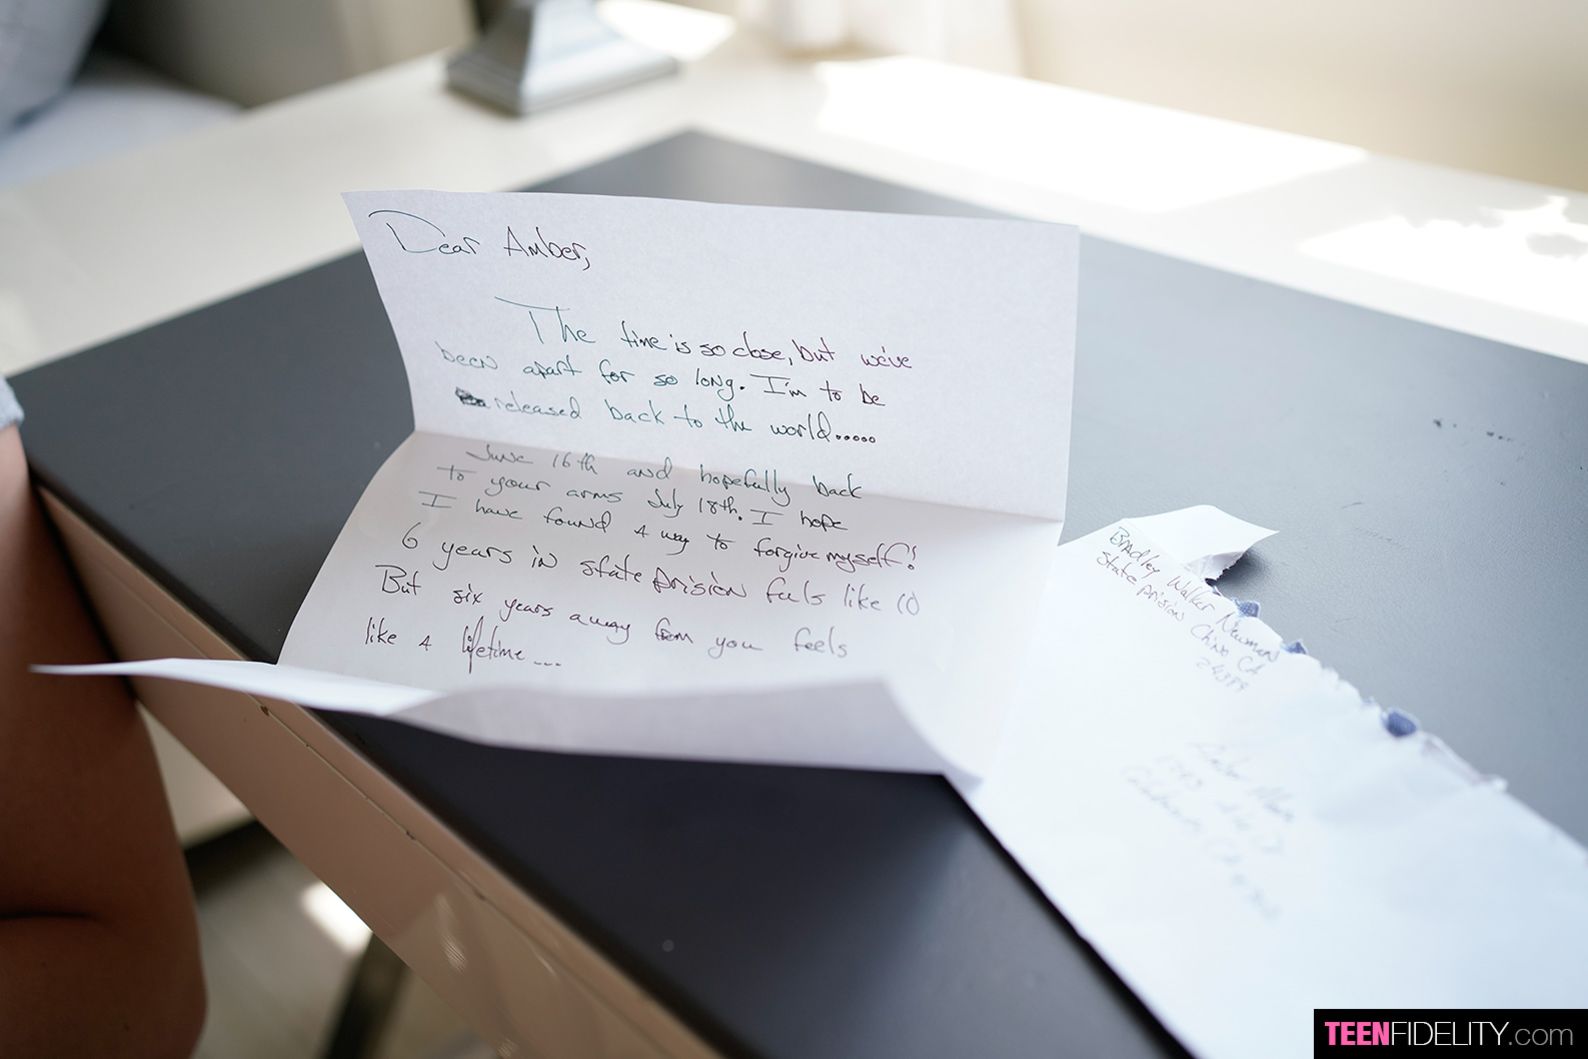 Dear Amber,
The time is so close, but we've
been apart for so long. I'm to be
released back to the world.....
June 16th and hopefully back
to your arms July 18th. I hope
I have found a way to forgive myself!
6 years in state prision feels like 10
But six years away from you feels
like a lifetime...
Bradley Walker Newman
State prision Chino CA
24399
TEENFIDELITY.com